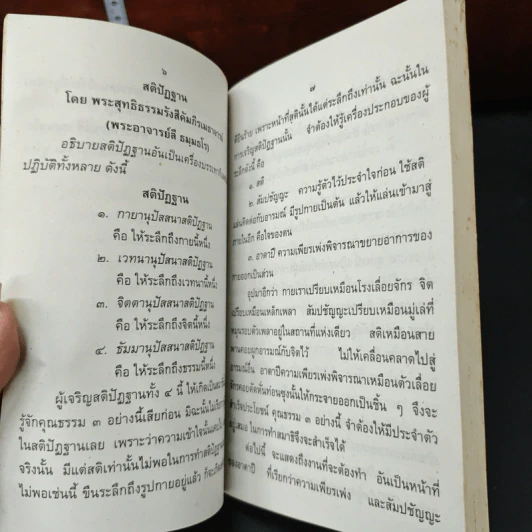 ๖
สติปัฏฐาน
โดย พระสุทธิธรรมรังสีคัมภีรเมธาจารย์
(พระอาจารย์ลี ธมฺมธโร)
อธิบายสติปัฏฐานอันเป็นเครื่อง
ปฏิบัติทั้งหลาย ดังนี้
สติปัฏฐาน
๑. กายานุปัสสนาสติปัฏฐาน
คือ ให้ระลึกถึงกายนี้หนึ่ง
๒. เวทนานุปัสสนาสติปัฏฐาน
คือ ให้ระลึกถึงเวทนานี้หนึ่ง
๓. จิตตานุปัสสนาสติปัฏฐาน
คือ ให้ระลึกถึงจิตนี้หนึ่ง
๔. ธัมมานุปัสสนาสติปัฏฐาน
คือ ให้ระลึกถึงธรรมนี้หนึ่ง
ผู้เจริญสติปัฏฐานทั้ง ๔ นี้ ให้เกิดเป็น
รู้จักคุณธรรม ๓ อย่างนี้เสียก่อน มิฉะนั้นไม่
ในสติปัฏฐานเลย เพราะว่าความเข้าใจนั้น
จริงนั้น มีแต่สติเท่านั้นไม่พอในการทำสติปัฏฐาน
ไม่พอเช่นนี้ ขืนระลึกถึงรูปกายอยู่แล้ว ก็จะ
๗
ดีปนร้าย เพราะหน้าที่สตินั้นได้แต่ระลึกถึงเท่านั้น ฉะนั้นใน
การเจริญสติปัฏฐานนั้น จำต้องให้รู้เครื่องประกอบของผู้
ระลึกดังนี้ คือ
๑. สติ
๒. สัมปชัญญะ ความรู้ตัวไว้ประจำใจก่อน ใช้สติ
แล่นติดต่อกับอารมณ์ มีรูปกายเป็นต้น แล้วให้แล่นเข้ามาสู่
ภายในอีก คือใจของตน
๓. อาตาปี ความเพียรเพ่งพิจารณาขยายอาการของ
กายออกเป็นส่วน
อุปมาอีกว่า กายเราเปรียบเหมือนโรงเลื่อยจักร จิต
เปรียบเหมือนเหล็กเพลา สัมปชัญญะเปรียบเหมือนมู่เล่ที่
หมุนรอบตัวเพลาอยู่ในสถานที่แห่งเดียว สติเหมือนสาย
พานคอยผูกอารมณ์กับจิตไว้ ไม่ให้เคลื่อนคลาดไปสู่
อารมณ์อื่น อาตาปีความเพียรเพ่งพิจารณาเหมือนตัวเลื่อย
จักรคอยตัดหั่นท่อนซุงนั้นให้กระจายออกเป็นชิ้น ๆ จึงจะ
สำเร็จประโยชน์ คุณธรรม ๓ อย่างนี้ จำต้องให้มีประจำตัว
อยู่เสมอ ในการทำสมาธิจึงจะสำเร็จได้
ต่อไปนี้ จะแสดงถึงงานที่จะต้องทำ อันเป็นหน้าที่
ของอาตาปี ที่เรียกว่าความเพียรเพ่ง และสัมปชัญญะ